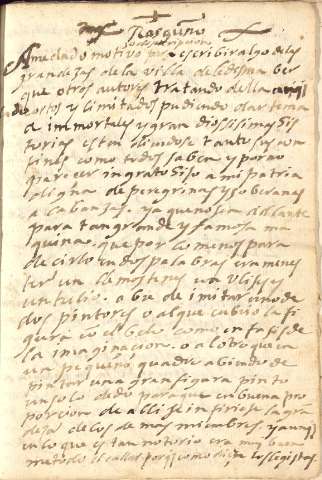 Rasguño
A me dado motivo para escribir algo de las
grandezas de la villa de ledesma ber
que otros autores tratando della
cortos y limitados pudiendo dar tema
a immortales y grandiossisimas his
torias estandiendose tanto sus con
fines como todos saben y por no
parecer ingrato hijo a mi patria
digna de peregrinas y soberanas
alabanzas. ya que no sea bastante
para tan grande y famosa ma
quina. que por lo menos para
decirlo en dos palabras era menes
ter un demostenes un ulises y
un tulio. abre de imitar a uno de
dos pintores o al que cubrio la fi
gura con el belo como enfasis de
la imaginacion. o al otro que en
un pequeño quadro abiendo de
pintar una gran figura pinto
un solo dedo para que en buena pro
porcion de alli se infiriese la gran
deza de los demas miembros. y aunque
en lo que es tan notorio era muy buen
metodo el callar porque como dizen los legistas